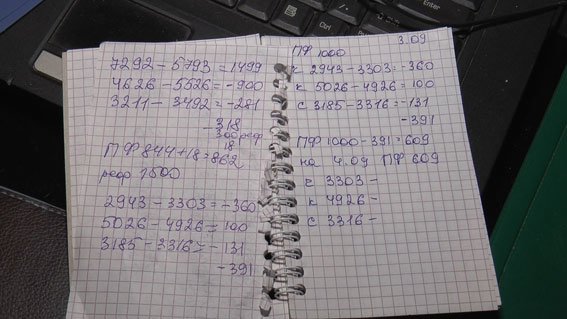 7292-5793=1499
4626-5526=-900
3211-3492=-281
-318
300 реф
18
ПФ 844+18=862
реф 1500
2943-3303=-360
5026-4926=100
3185-3316=-131
-391
3.09
ПФ 1000
к 2943-3303=-360
к 5026-4926=100
с 3185-3316=-131
-391
ПФ 1000-391=609
на 4.09 ПФ 609
к 3303-
к 4926-
с 3316-